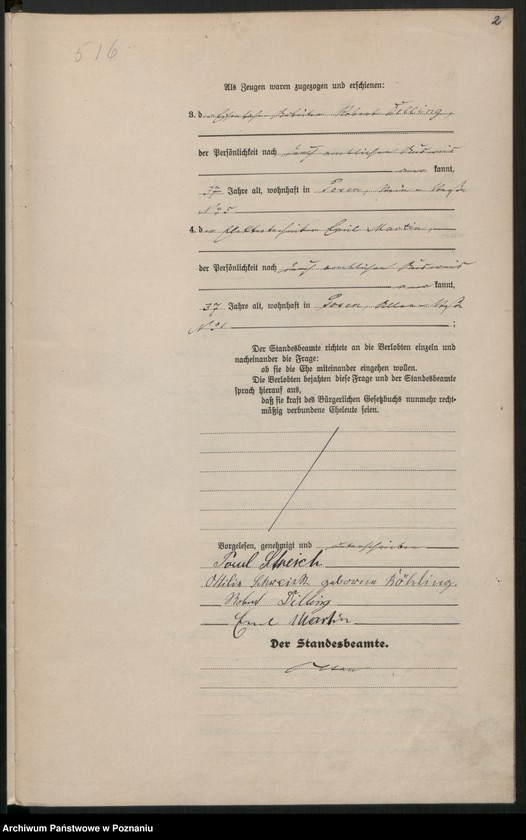 2
516
Als Zeugen waren zugezogen und erschienen:
3. der Eisenbahn Arbeiter Robert Tilling,
der Persönlichkeit nach durch amtlichen Ausweis
kannt,
37 Jahre alt, wohnhaft in Posen,
No 5
4. der Elektrotechniker Emil Martin,
der Persönlichkeit nach durch amtlichen Ausweis
kannt,
37 Jahre alt, wohnhaft in Posen,
;
Der Standesbeamte richtete an die Verlobten einzeln und
nacheinander die Frage:
ob sie die Ehe miteinander eingehen wollen.
Die Verlobten bejahten diese Frage und der Standesbeamte
sprach hierauf aus,
daß sie kraft des Bürgerlichen Gesetzbuchs nunmehr recht-
mäßig verbundene Eheleute seien.
Vorgelesen, genehmigt und unterschrieben
Paul Streich
Ottilie geborene Röhling.
Robert Tilling
Emil Martin
Der Standesbeamte.
Archiwum Państwowe w Poznaniu